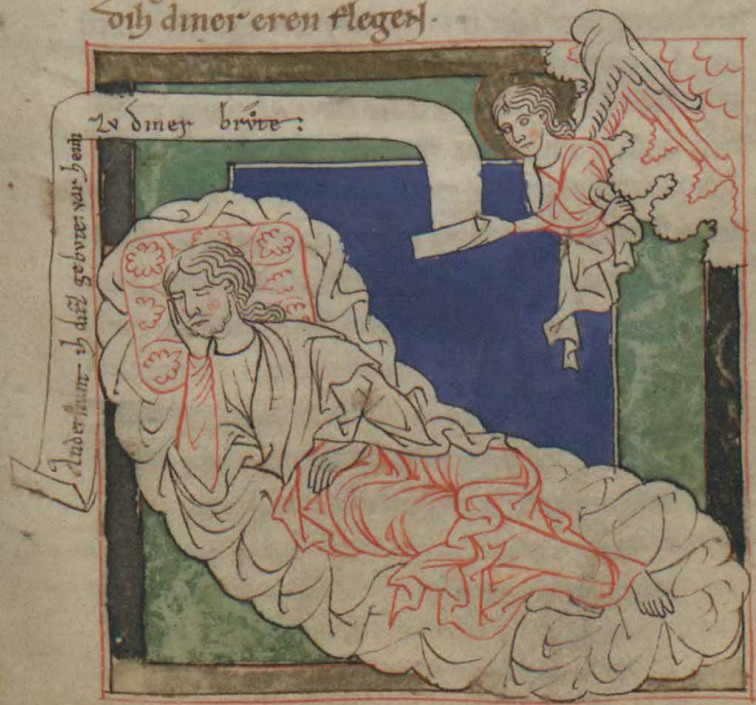 dih diner eren flegen.
Anderstunt ih dirz gebvte: var heim
zv diner brůte: